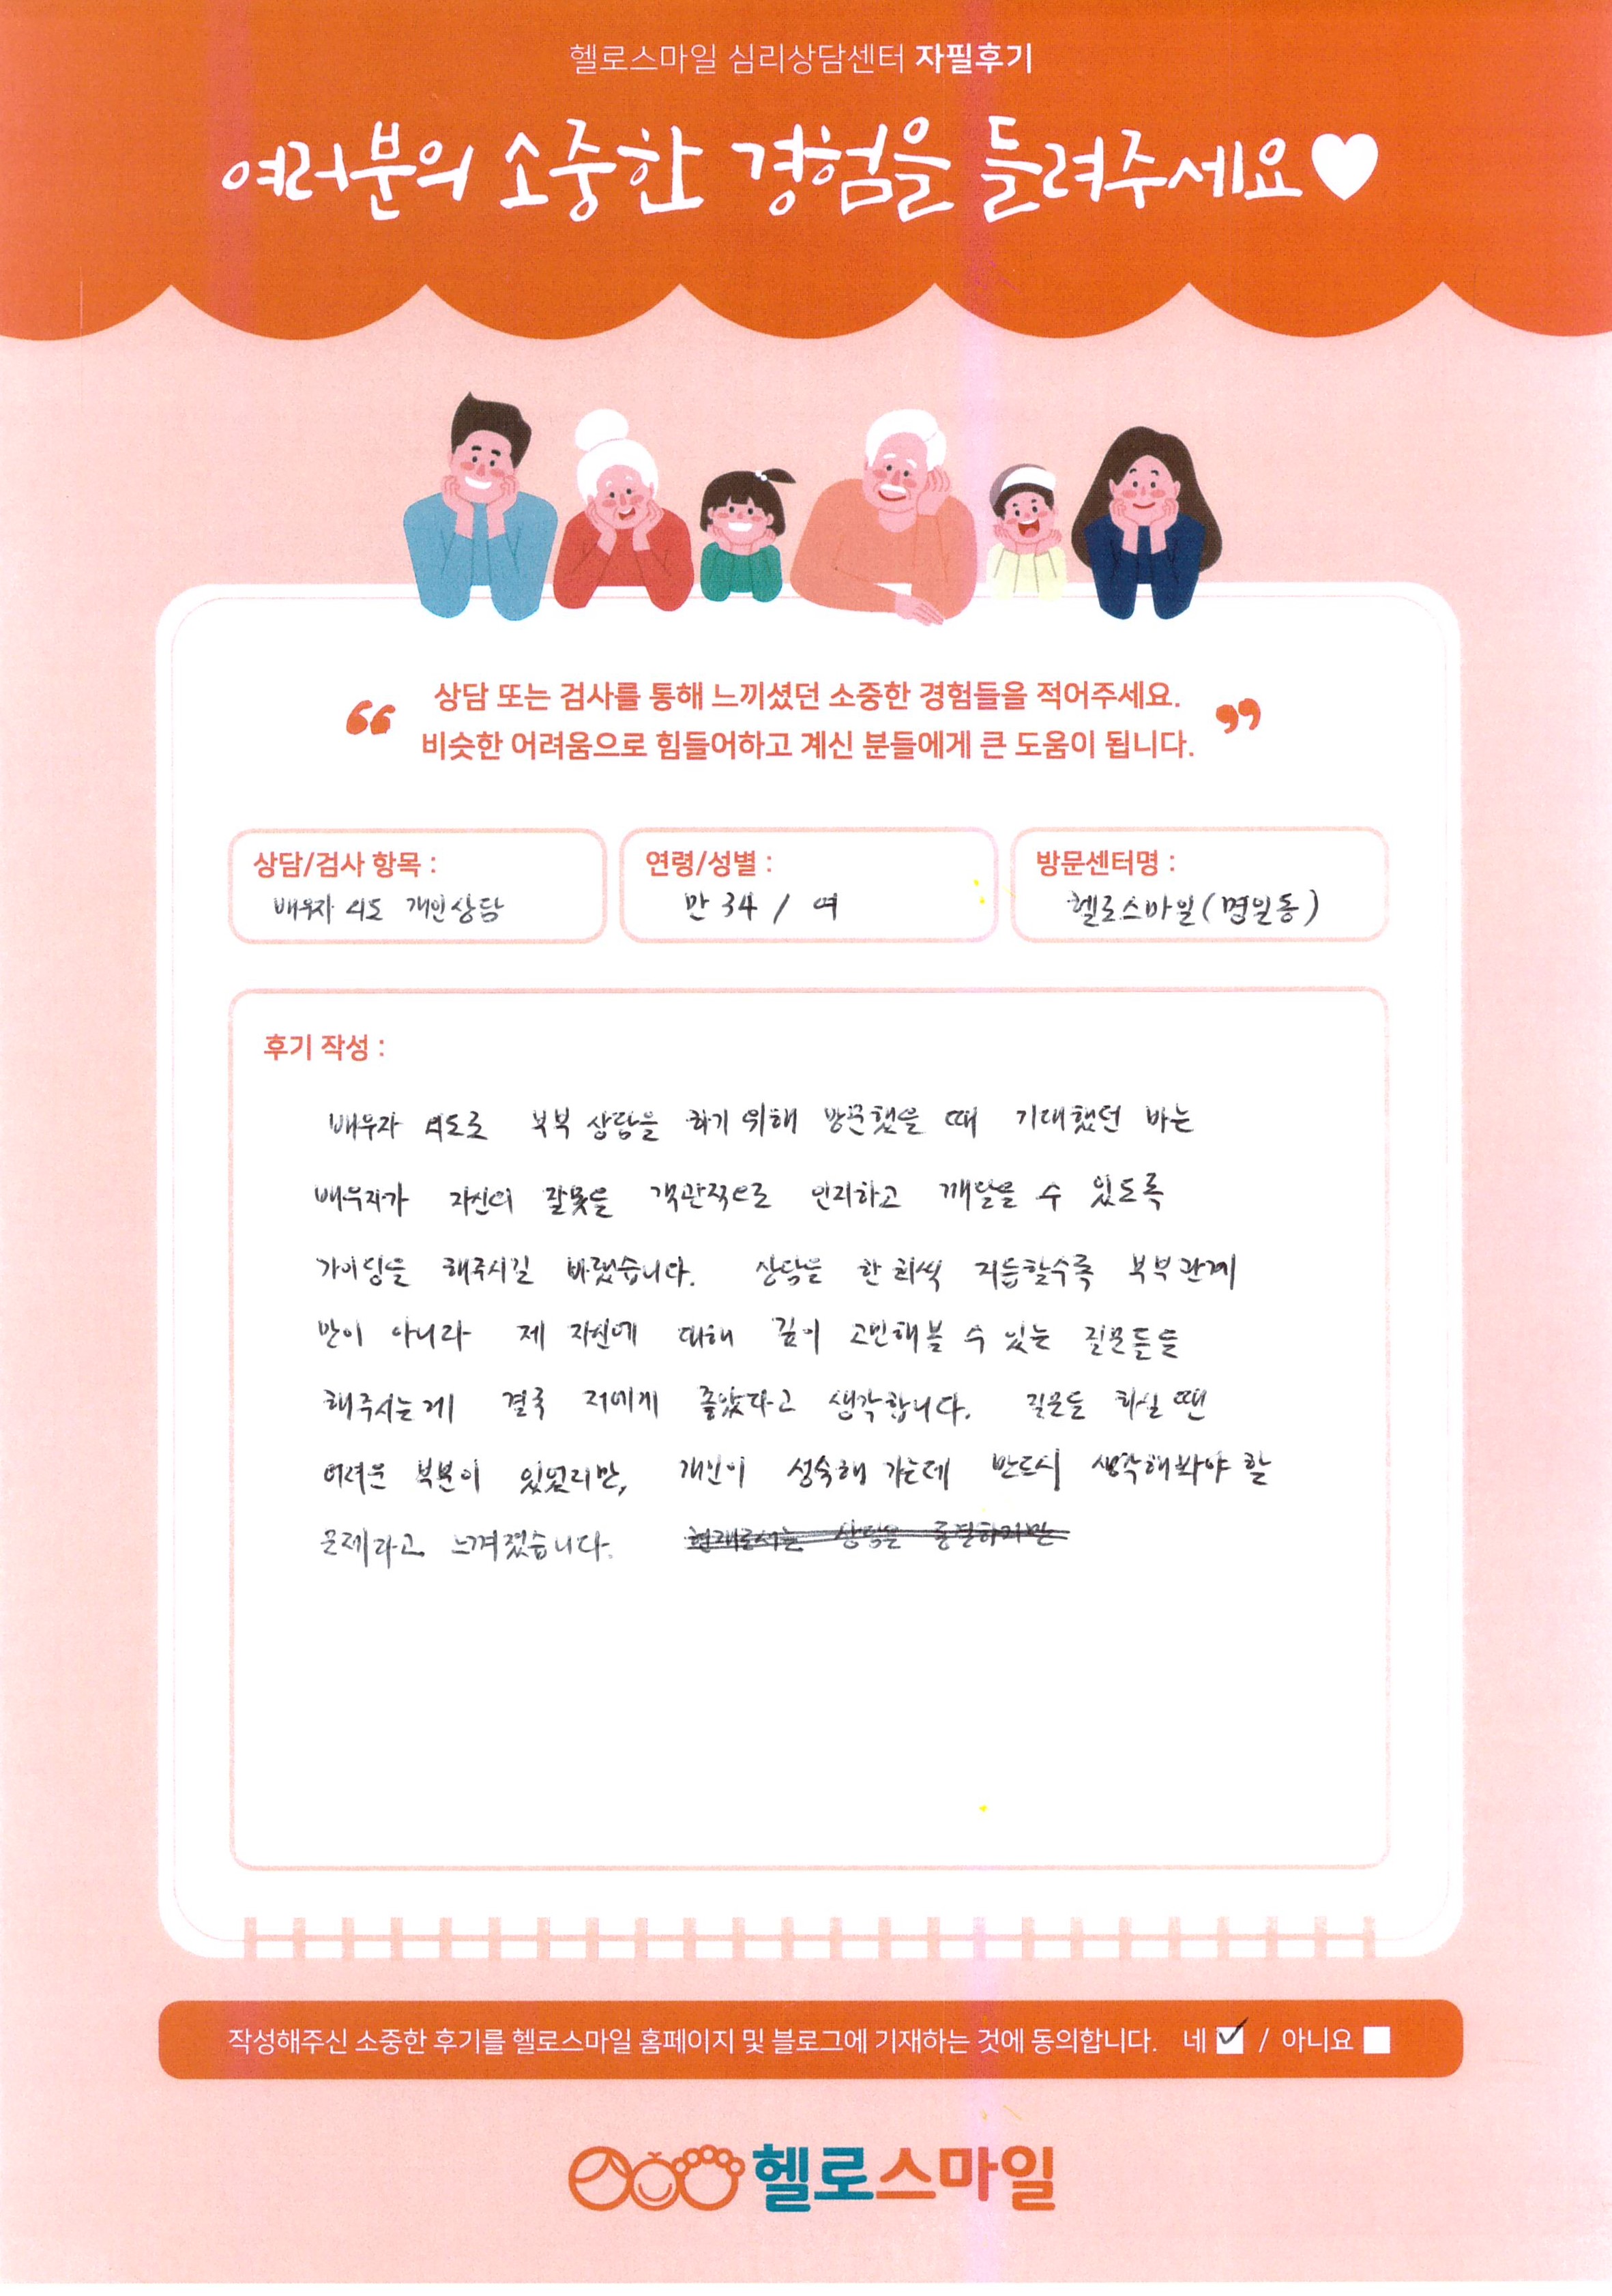 헬로스마일 심리상담센터 자필후기
여러분의 소중한 경험을 들려주세요♥
“ 상담 또는 검사를 통해 느끼셨던 소중한 경험들을 적어주세요. ”
비슷한 어려움으로 힘들어하고 계신 분들에게 큰 도움이 됩니다.
상담/검사 항목 :
배우자 외도 개인상담
연령/성별 :
만 34 / 여
방문센터명 :
헬로스마일(명일동)
후기 작성 :
배우자 외도로 부부 상담을 하기 위해 방문했을 때 기대했던 바는
배우자가 자신의 잘못을 객관적으로 인지하고 깨달을 수 있도록
가이딩을 해주시길 바랬습니다. 상담을 한 회씩 거듭할수록 부부관계
만이 아니라 제 자신에 대해 깊이 고민해볼 수 있는 질문들을
해주시는게 결국 저에게 좋았다고 생각합니다. 질문을 하실 땐
어려운 부분이 있었지만, 개인이 성숙해 가는데 반드시 생각해봐야 할
문제라고 느껴졌습니다. 현재로서는 상담을 종결하지만
작성해주신 소중한 후기를 헬로스마일 홈페이지 및 블로그에 기재하는 것에 동의합니다. 네 / 아니요
헬로스마일